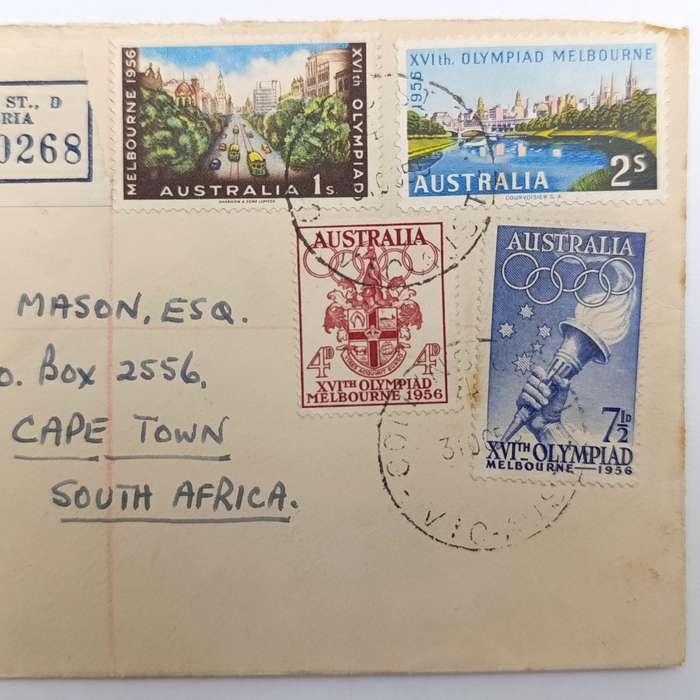 ST., D
RIA
0268
MELBOURNE 1956
XVIth OLYMPIAD
AUSTRALIA 1S.
HARRISON & SONS LIMITED
XVIth. OLYMPIAD MELBOURNE
1956
AUSTRALIA 2S
COURVOISIER S.A.
AUSTRALIA
4D 4D
XVITH OLYMPIAD
MELBOURNE 1956
AUSTRALIA
7½D
XVITH OLYMPIAD
MELBOURNE 1956
MASON, ESQ.
O. BOX 2556,
CAPE TOWN
SOUTH AFRICA.
31 OC